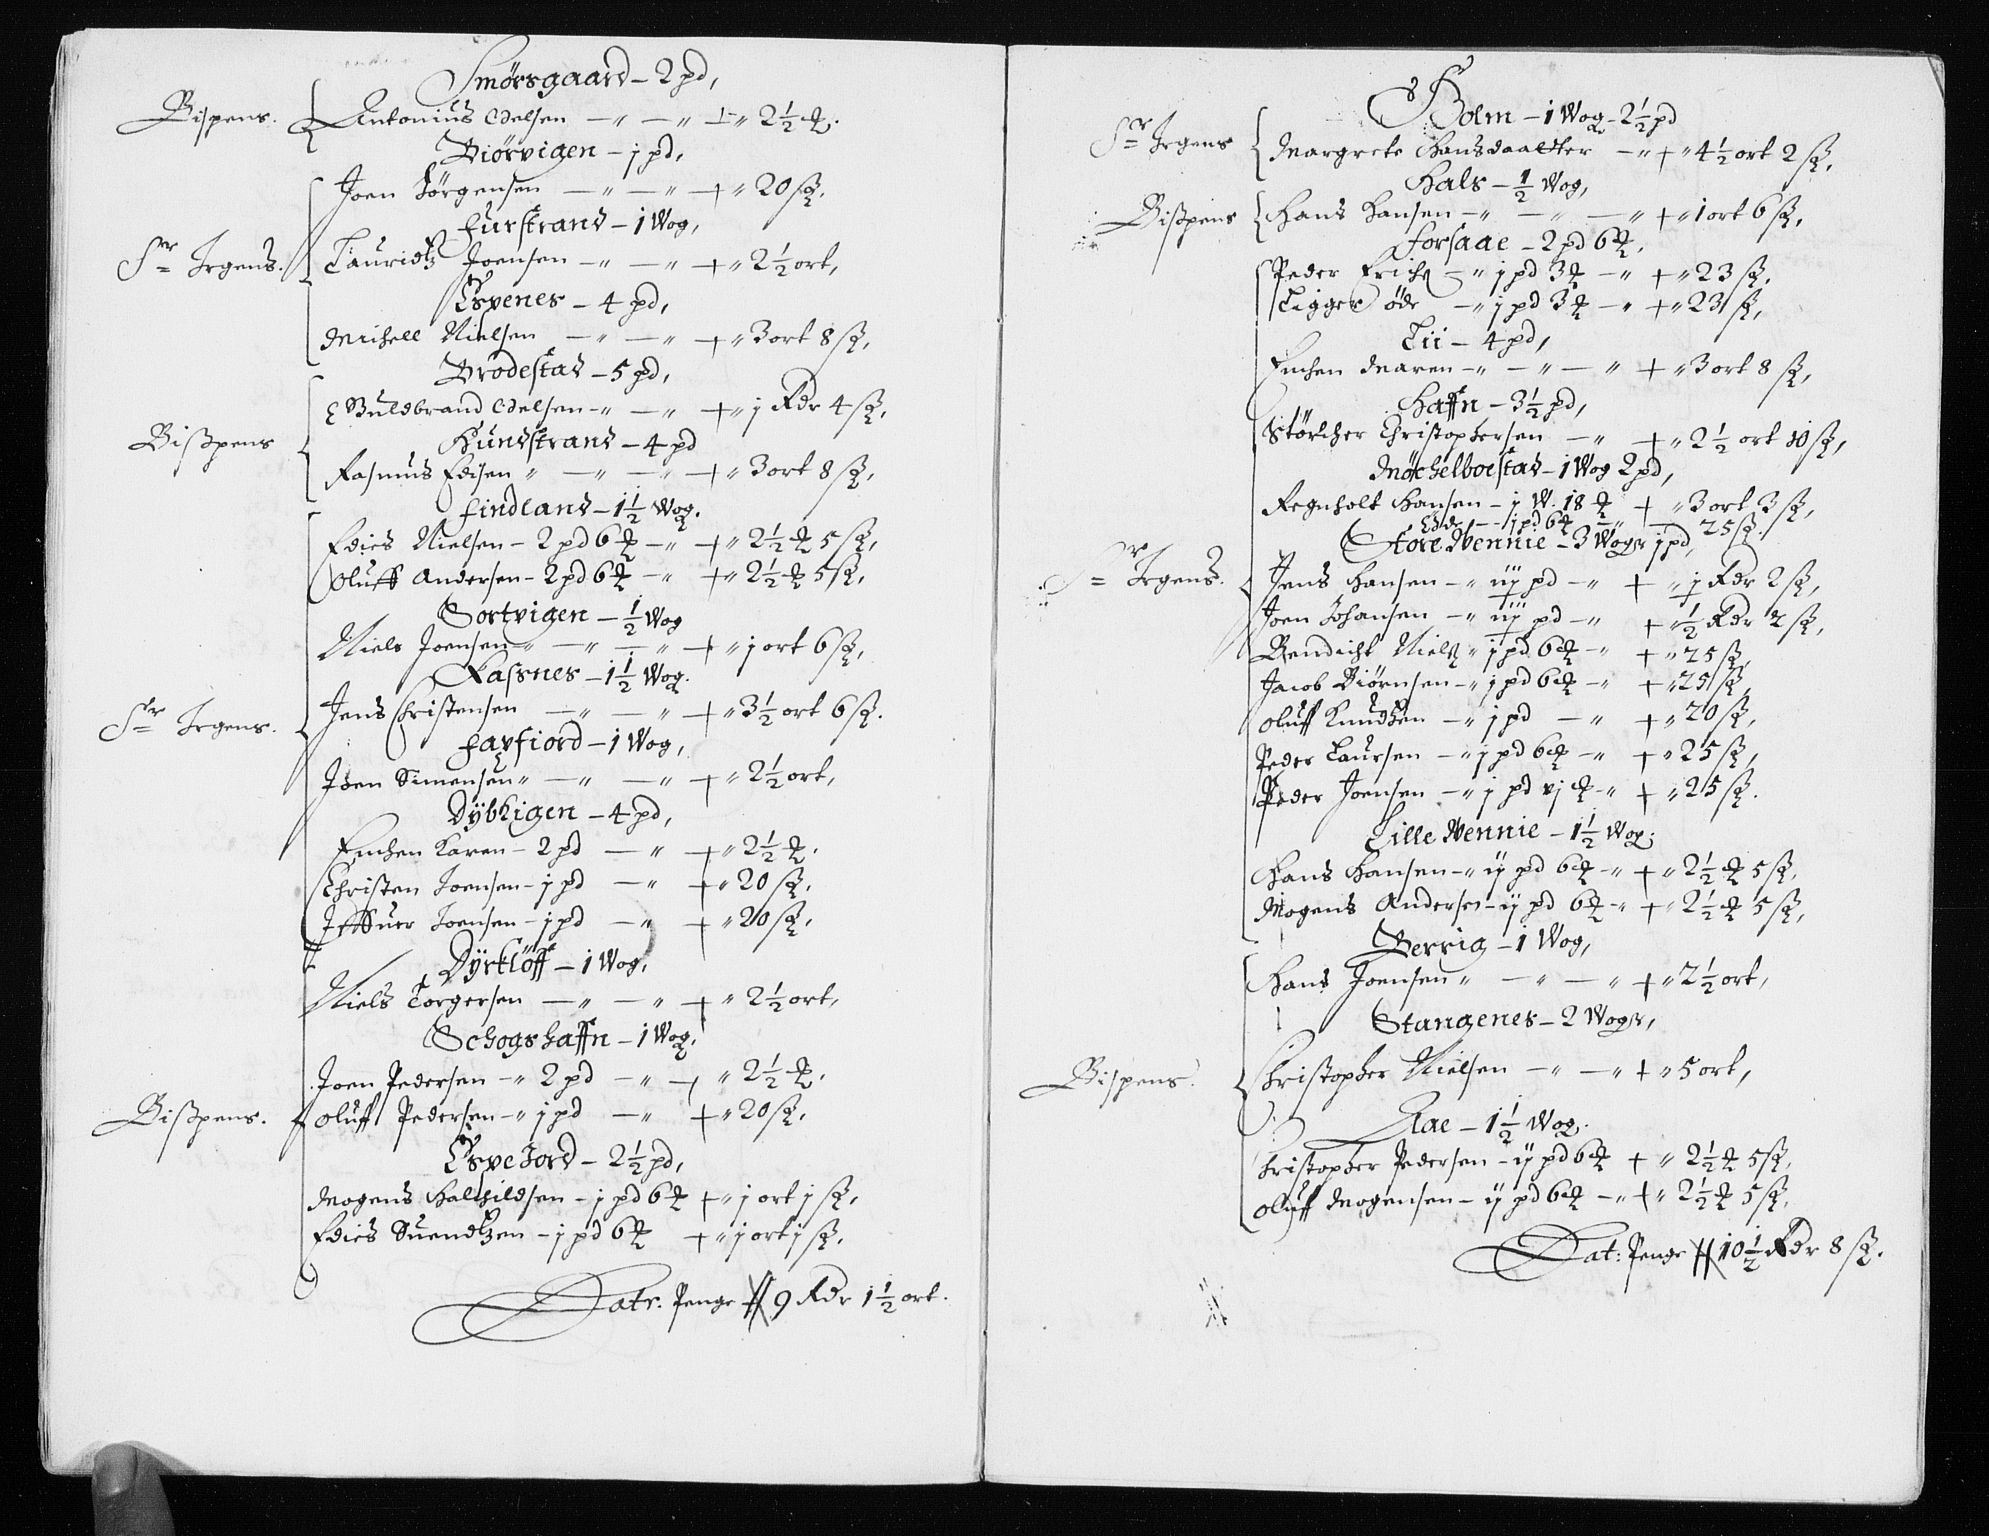 Smørsgaard - 2 pd,
Bispens. Antonius Odelsen - " - " + " 2½ ℔.
Biørvigen - j pd,
Joen Jørgensen - " - " + " 20 sk.
Furstrand - 1 Wog,
Sr Irgens. Lauridtz Joensen - " - " + " 2½ ort,
Espenes - 4 pd,
Michell Nielsen - " - " + " 3 ort 8 sk,
Brodestad - 5 pd,
Guldbrand Odelsen - " - " + " j Rdr 4 sk,
Bisspens
Hundstrand - 4 pd
Rasmus Edisen " - " - " + " 3 ort 8 sk,
Findland - 1½ Wog.
Edies Nielsen - 2 pd 6 ℔ - " + " 2½ ℔ 5 sk,
Oluff Andersen - 2 pd 6 ℔ - " + " 2½ ℔ 5 sk,
Sortvigen - ½ Wog
Niels Joensen " - " - " + " j ort 6 sk,
Kasnes - 1½ Wog.
Sr Irgens. Jens Christensen - " - " + " 3½ ort 6 sk.
Faxfiord - 1 Wog,
Joen Simensen " - " - " + " 2½ ort,
Dybvigen - 4 pd,
Enchen Karen - 2 pd - " + " 2½ ℔.
Christen Joensen - j pd - " + " 20 sk.
Iffuer Joensen - j pd - " + " 20 sk,
Dyrkløff - 1 Wog,
Niels Torgersen - " - " + " 2½ ort,
Schogshaffn - 1 Wog,
Joen Pedersen - " 2 pd - " + " 2½ ℔.
Bisspens. Oluff Pedersen - " j pd - " + " 20 sk,
Espeiord - 2½ pd,
Mogens Halchildsen - j pd 6 ℔ + " j ort j sk,
Edies Suendtzen - j pd 6 ℔ + " j ort j sk,
Latr. Penge 9 Rdr 1½ ort.
Holm - 1 Wog - 2½ pd
Sr Irgens Margrete Hansdaatter - " + " 4½ ort 2 sk,
Hals - ½ Wog,
Bisspens Hans Hansen - " - " - " + " 1 ort 6 sk,
Forsaae - 2 pd 6 ℔.
Peder Erichs - " j pd 3 ℔ - " + " 23 sk.
Ligger øde - " j pd 3 ℔ - " + " 23 sk,
Lii - 4 pd,
Enchen Maren - " - " - " + " 3 ort 8 sk,
Haffn - 3½ pd,
Størcher Christophersen - " + " 2½ ort 10 sk,
Møchelboestad - 1 Wog 2 pd,
Regnholt Hansen - j W. 18 ℔ + " 3 ort 3 sk,
Øde - - j pd 6 ℔ - " - 25 sk.
Store Wennie - 3 Woger j pd,
Sr Irgens. Jens Hansen - " iij pd - " + " ½ Rdr 2 sk,
Joen Johansen - " iij pd - " + " ½ Rdr 2 sk,
Bendicht Niels " j pd 6 ℔ - " + " 25 sk,
Jacob Biørnsen - " j pd 6 ℔ - " + " 25 sk,
Oluff Knudtzen - " j pd - " + " 20 sk,
Peder Laursen - " j pd 6 ℔ - " + " 25 sk,
Peder Joensen - " j pd vj ℔ - " + " 25 sk.
Lille Wennie - 1½ Wog.
Hans Hansen - " ij pd 6 ℔ - " + " 2½ ℔ 5 sk,
Mogens Andersen - ij pd 6 ℔ - " + " 2½ ℔ 5 sk,
Berrig - 1 Wog,
Hans Joensen " - " - " + " 2½ ort,
Stangenes - 2 Woger,
Bispens. Christopher Nielsen - " - " + " 5 ort,
Aae - 1½ Wog.
Christopher Pedersen - ij pd 6 ℔ + " 2½ ℔ 5 sk,
Oluff Mogensen - ij pd 6 ℔ - " + " 2½ ℔ 5 sk,
Lat: Penge 10½ Rdr 8 sk.